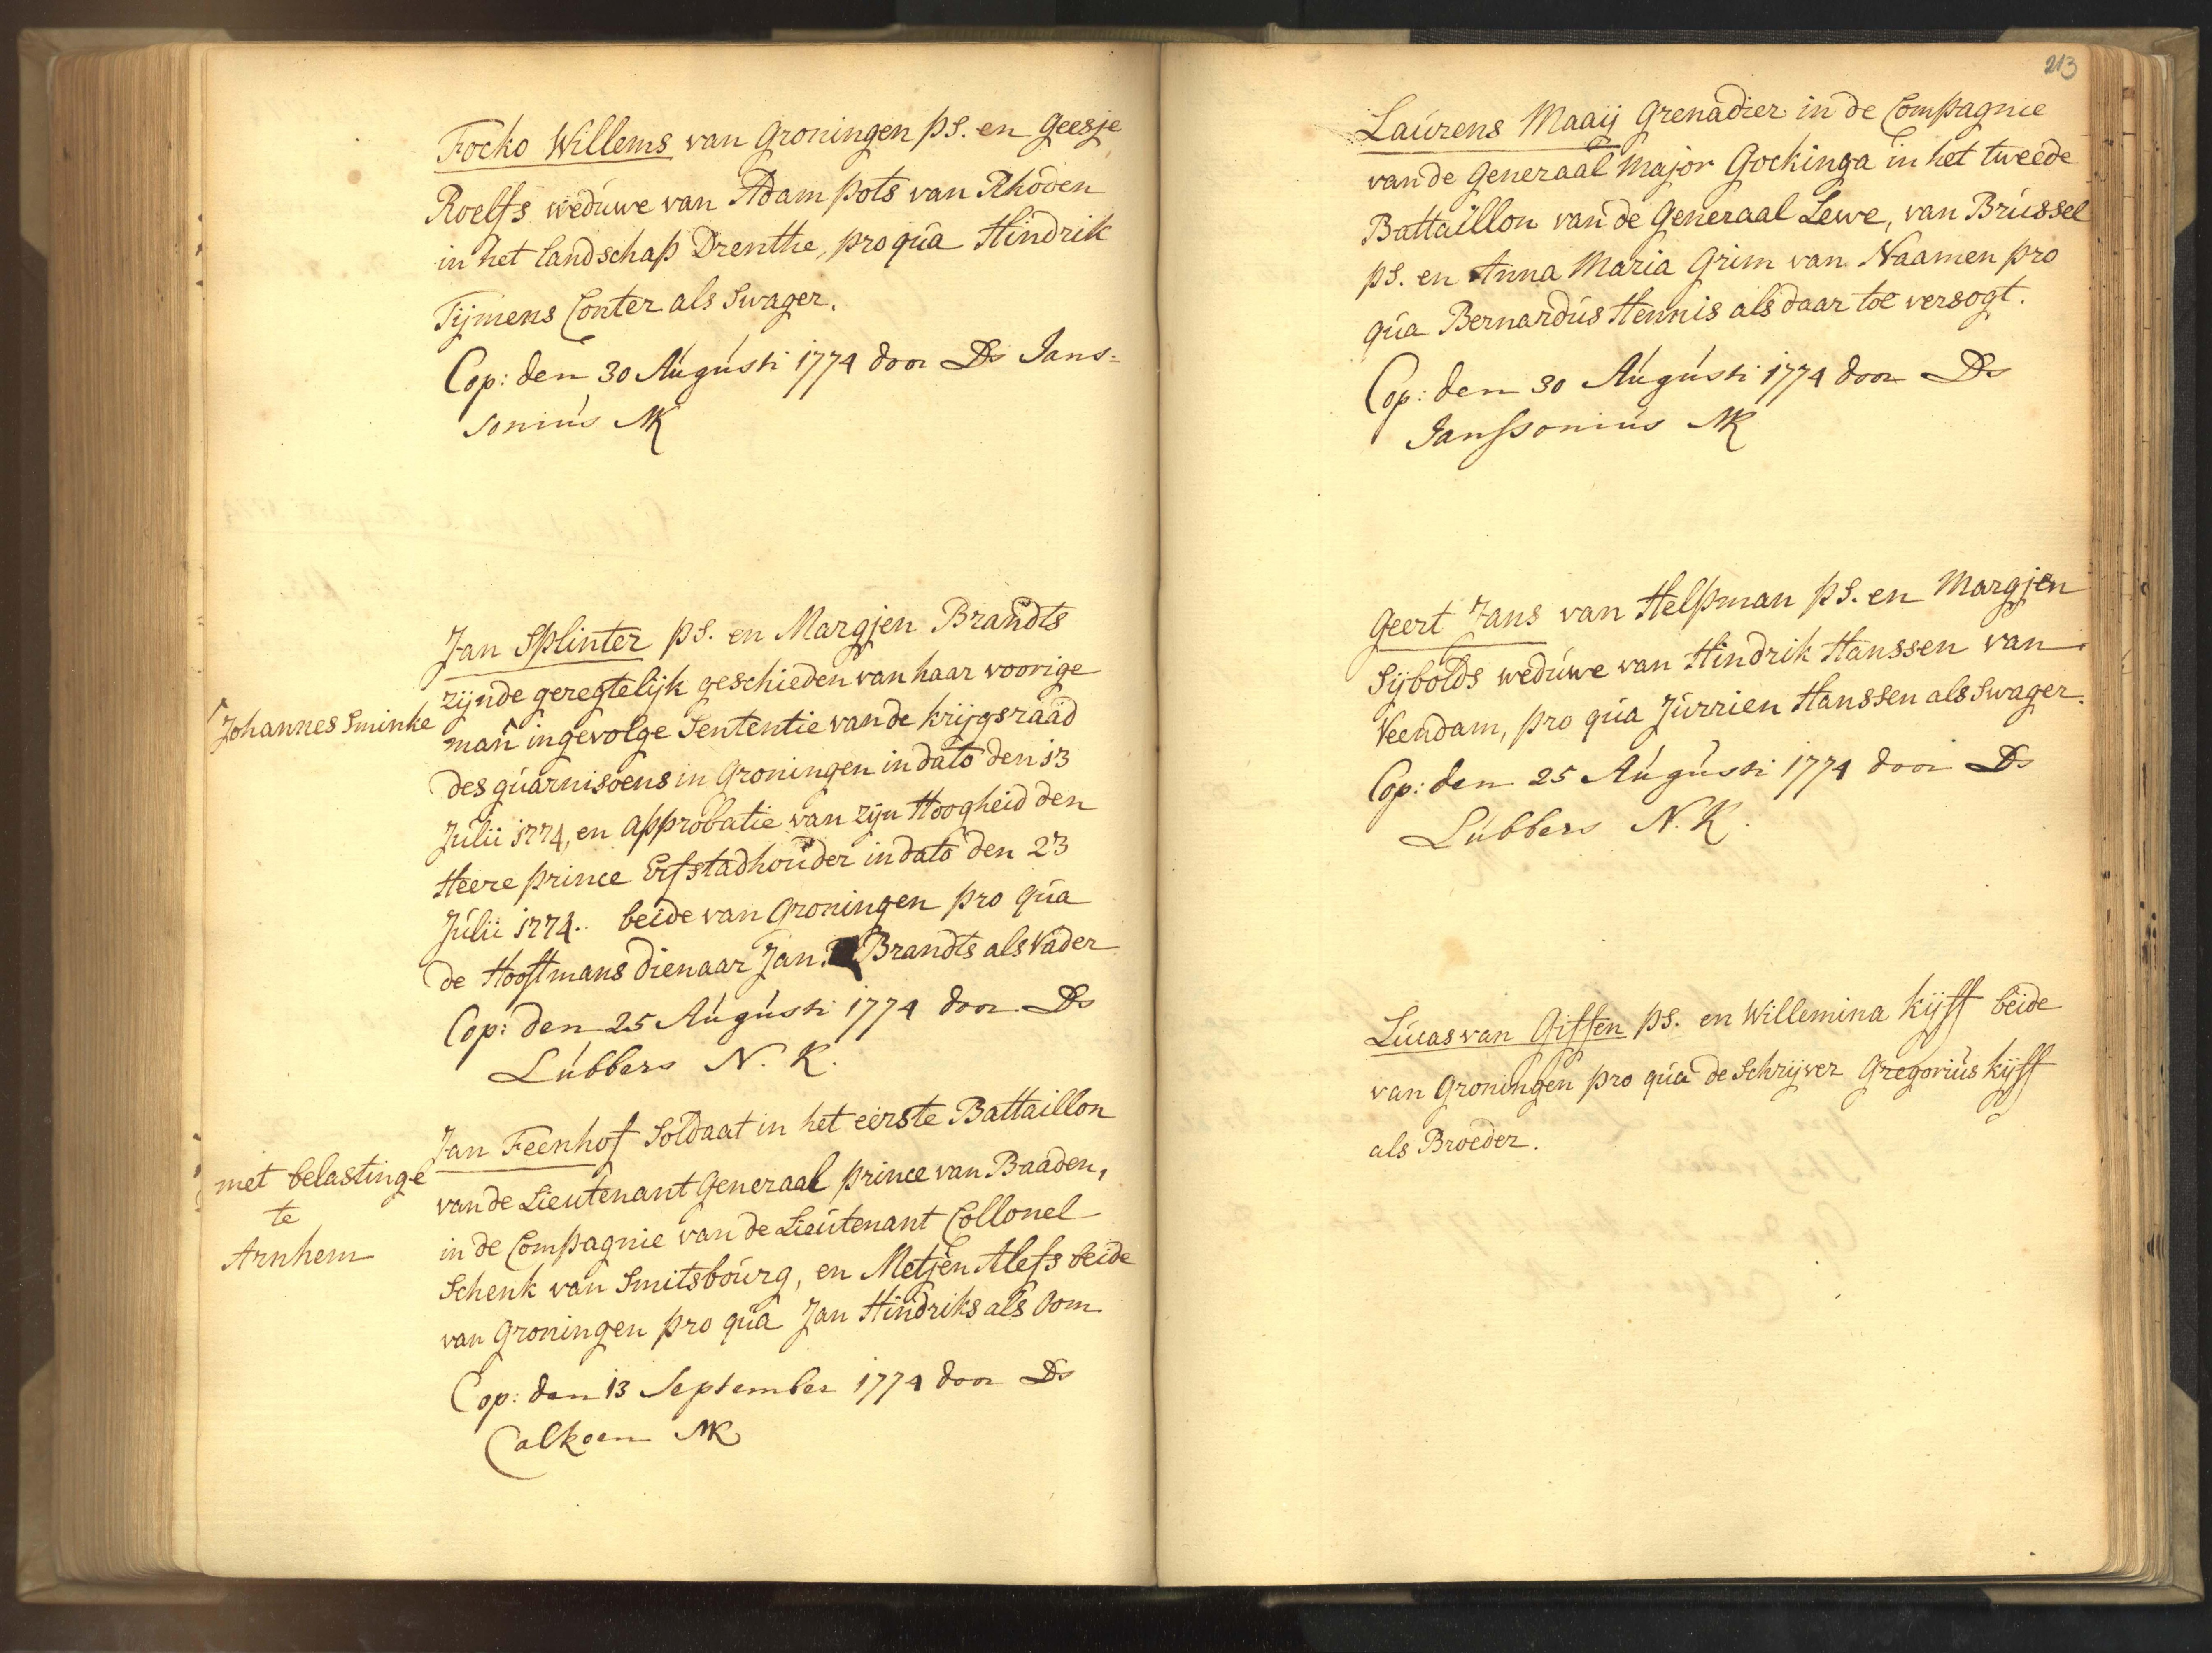 Focko Willems van Groningen ps. en Geesje
Roelfs weduwe van Adam Pots van Rhoden
in het landschap Drenthe, pro qua Hindrik
Tijmens Conter als Swager.
Cop: den 30 Augusti 1774 door Ds Jans-
sonius NK
Jan Splinter ps. en Margjen Brandts
zijnde geregtelijk geschieden van haar voorige
Johannes Sminke
man ingevolge Sententie van de krijgsraad
des guarnisoens in Groningen in dato den 13
Julii 1774, en approbatie van zijn Hoogheid den
Heere prince Erfstadhouder in dato den 23
Julii 1774. beide van Groningen pro qua
de Hooftmans dienaar Jan Brandts als Vader
Cop: den 25 Augusti 1774 door Ds
Lubbers N. K.
Jan Feenhof Soldaat in het eerste Battaillon
met belastinge
te
Arnhem
van de Lieutenant Generaal prince van Baaden,
in de Compagnie van de Lieutenant Collonel
Schenk van Smitsbourg, en Metjen Alefs beide
van Groningen pro qua Jan Hindriks als Oom
Cop: den 13 September 1774 door Ds
Calkoen NK
213
Laurens Maaij Grenadier in de Compagnie
van de Generaal Major Gockinga in het tweede
Battaillon van de Generaal Lewe, van Brussel
ps. en Anna Maria Grim van Naamen pro
qua Bernardus Hennis als daar toe versogt.
Cop: den 30 Augusti 1774 door Ds
Janssonius NK
Geert Jans van Helpman ps. en Margjen
Sijbolds weduwe van Hindrik Hanssen van
Veendam, pro qua Jurrien Hanssen als Swager.
Cop: den 25 Augusti 1774 door Ds
Lubbers N. K.
Lucas van Giffen ps. en Willemina Kijff beide
van Groningen pro qua de Schrijver Gregorius Kijff
als Broeder.